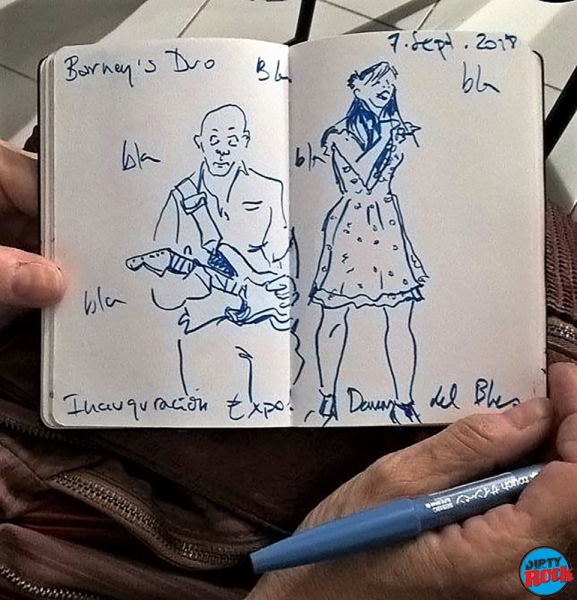 Barney's Duo
7. Sept. 2018
Bla
bla
bla
bla
bla
Inauguración Expo.
Damas del Blues
touch サインペン
DIRTY
Rock